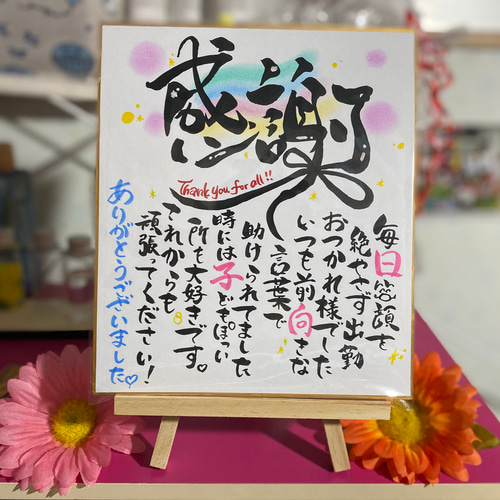 感謝
Thank you for all!!
毎日笑顔を
絶やさず出勤
おつかれ様でした
いつも前向きな
言葉で
助けられてました
時には子どもぽい
所も大好きです。
これからも
頑張ってください!
ありがとうございました♡